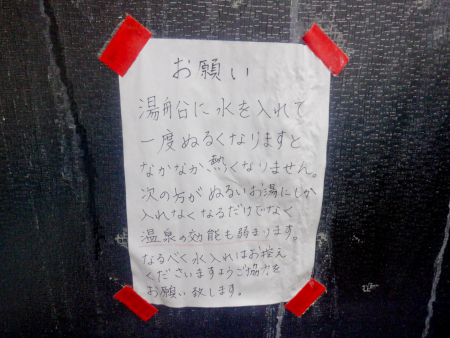 お願い
湯船に水を入れて
一度ぬるくなりますと
なかなか熱くなりません。
次の方がぬるいお湯にしか
入れなくなるだけでなく
温泉の効能も弱まります。
なるべく水入れはお控え
くださいますようご協力を
お願い致します。